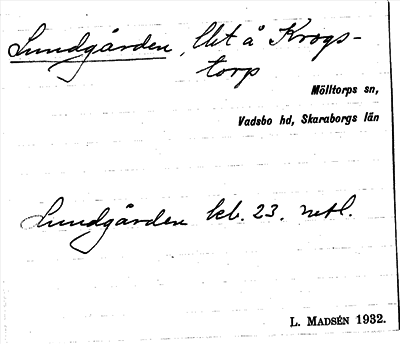 Lundgården, lht å Krogs-
torp
Mölltorps sn,
Vadsbo hd, Skaraborgs län
Lundgården kb. 23. netl.
L. MADSÉN 1932.